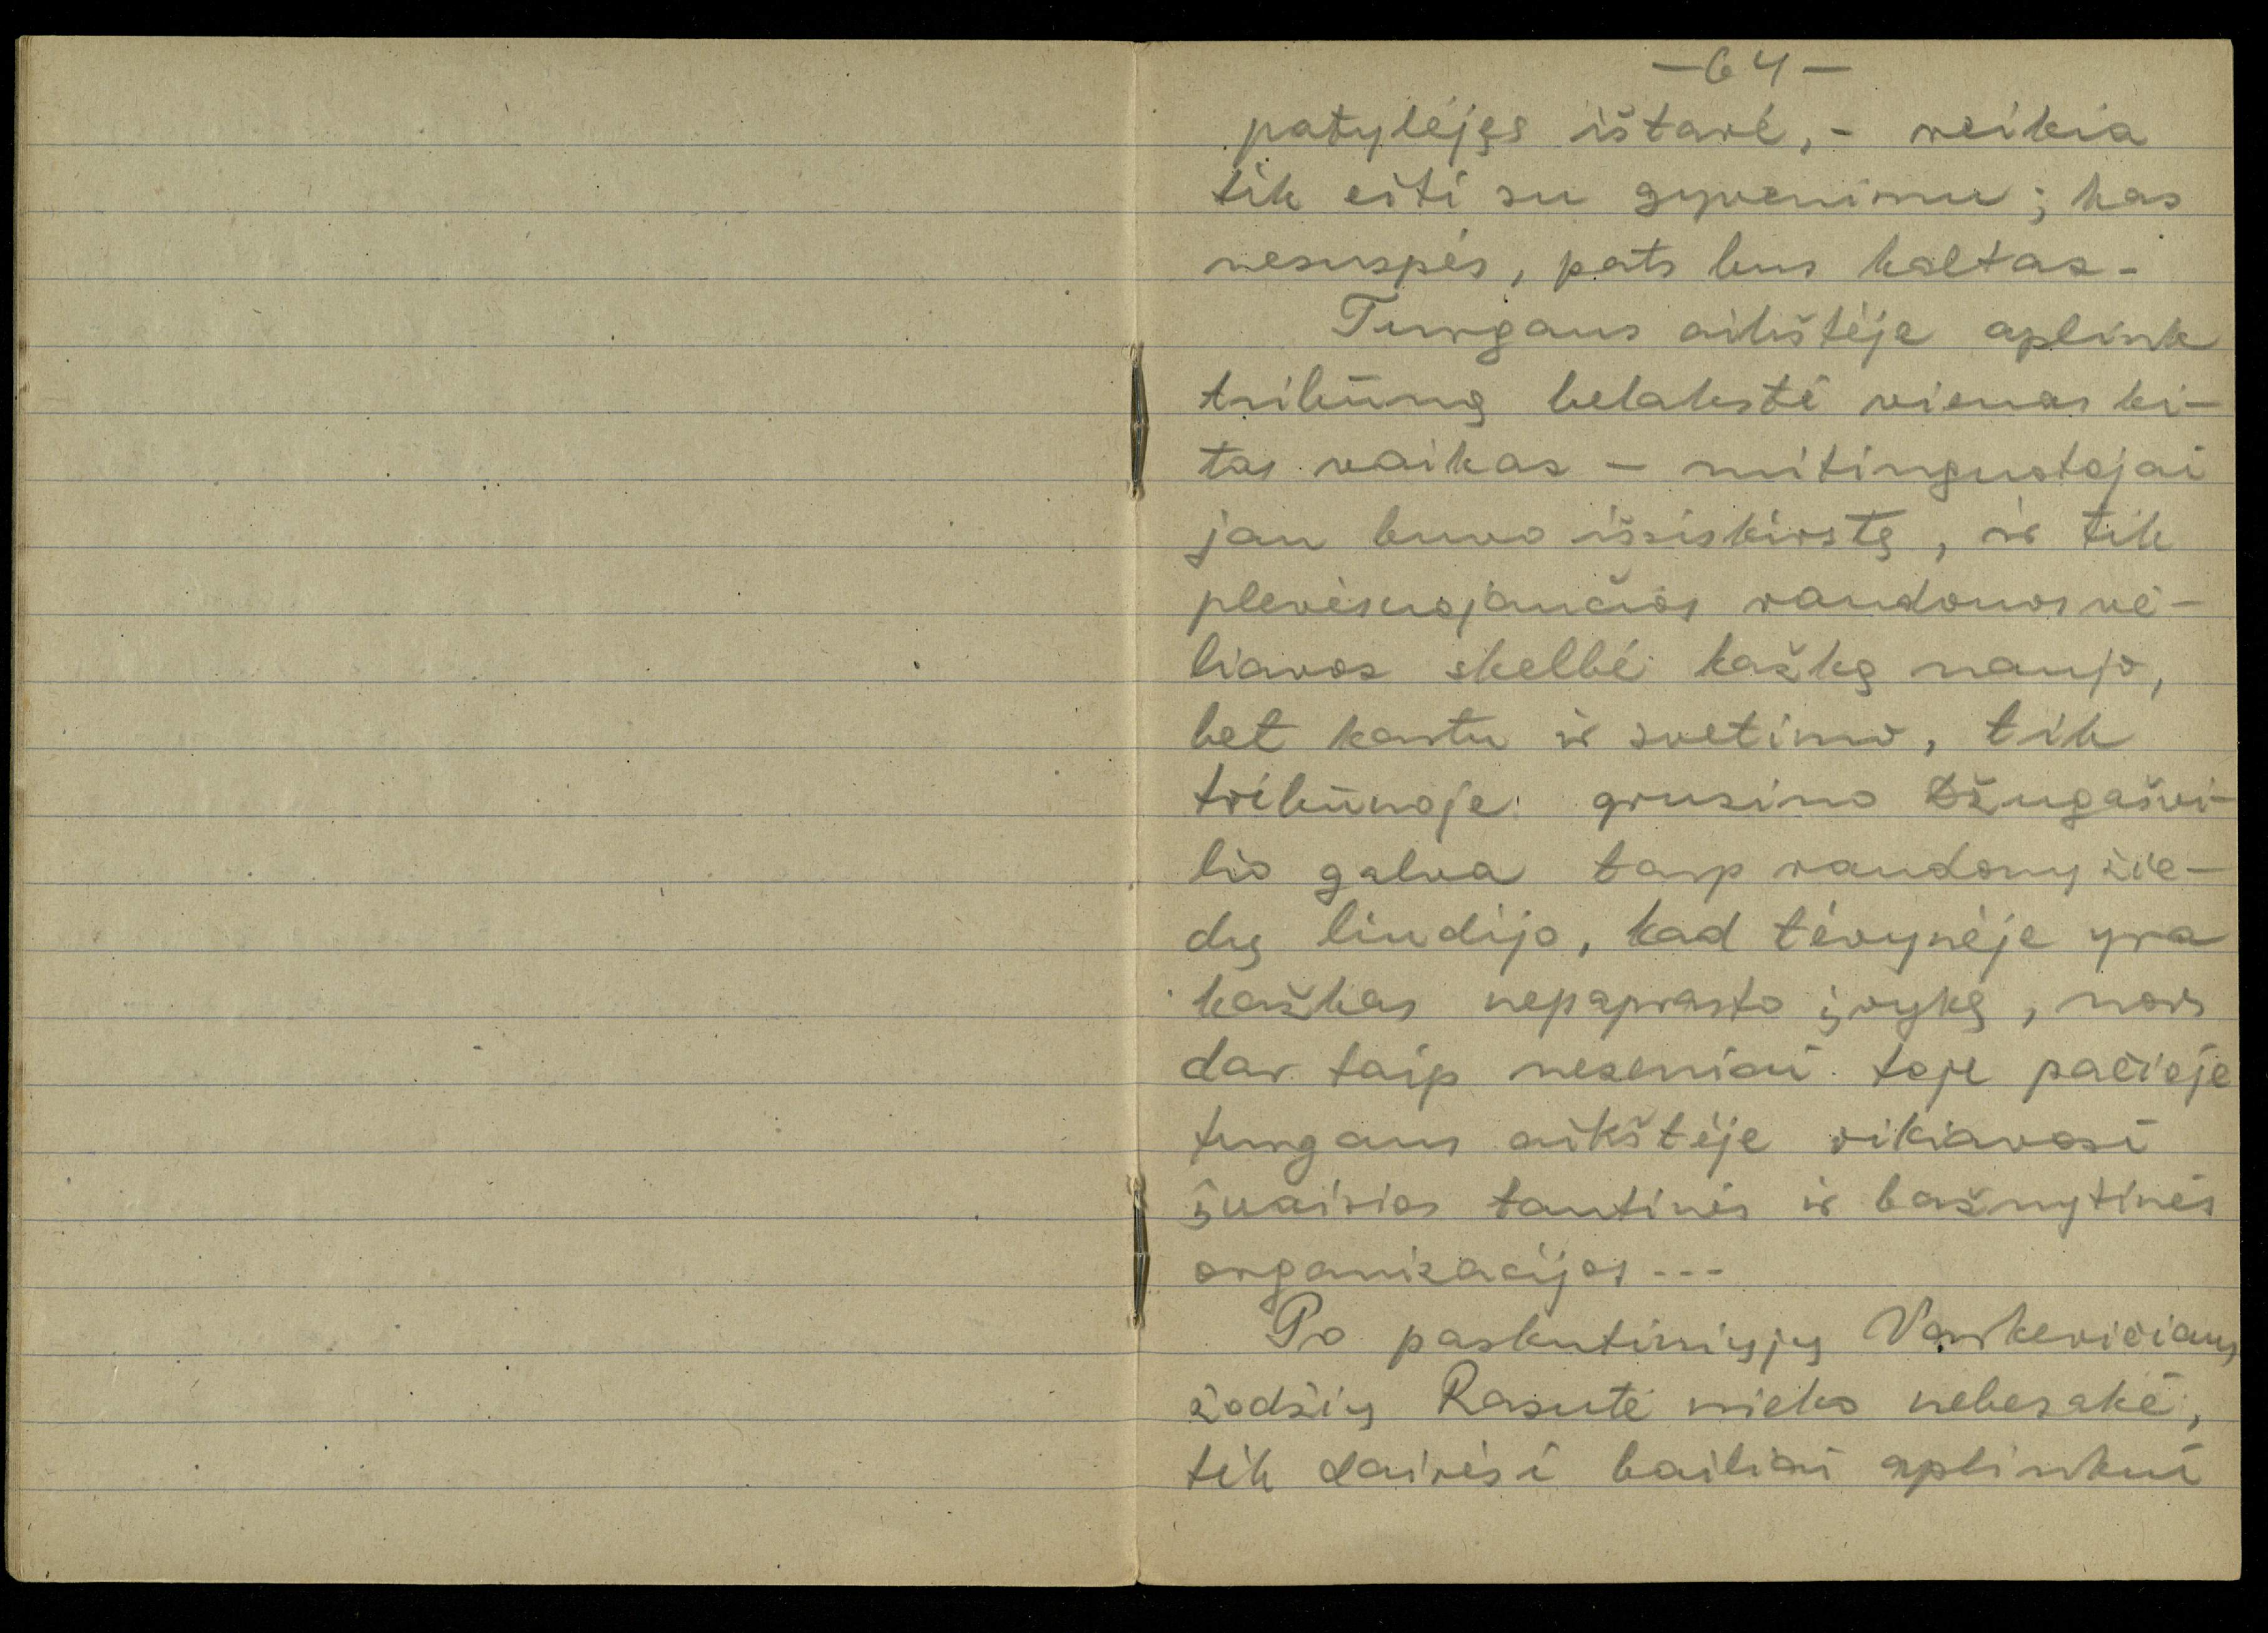 —64—
patylėjęs ištarė,- reikia
tik eiti su gyvenimu; kas
nesuspės, pats bus kaltas.
Turgaus aikštėje aplink
tribūną belakstė vienas ki-
tas vaikas — mitinguotojai
jau buvo išsiskirstę, ir tik
plevėsuojančios raudonos vė-
liavos skelbė kažką naujo,
bet kartu ir svetimo, tik
tribūnoje gruzino Džugašvi-
lio galva tarp raudonų žie-
dų liudijo, kad tėvynėje yra
kažkas nepaprasto įvykę, nors
dar taip neseniai toje pačioje
turgaus aikštėje rikiavosi
įvairios tautinės ir bažnytinės
organizacijos...
Po paskutiniųjų Vaskevičiaus
žodžių Rasutė nieko nebesakė,
tik dairėsi bailiai aplinkui